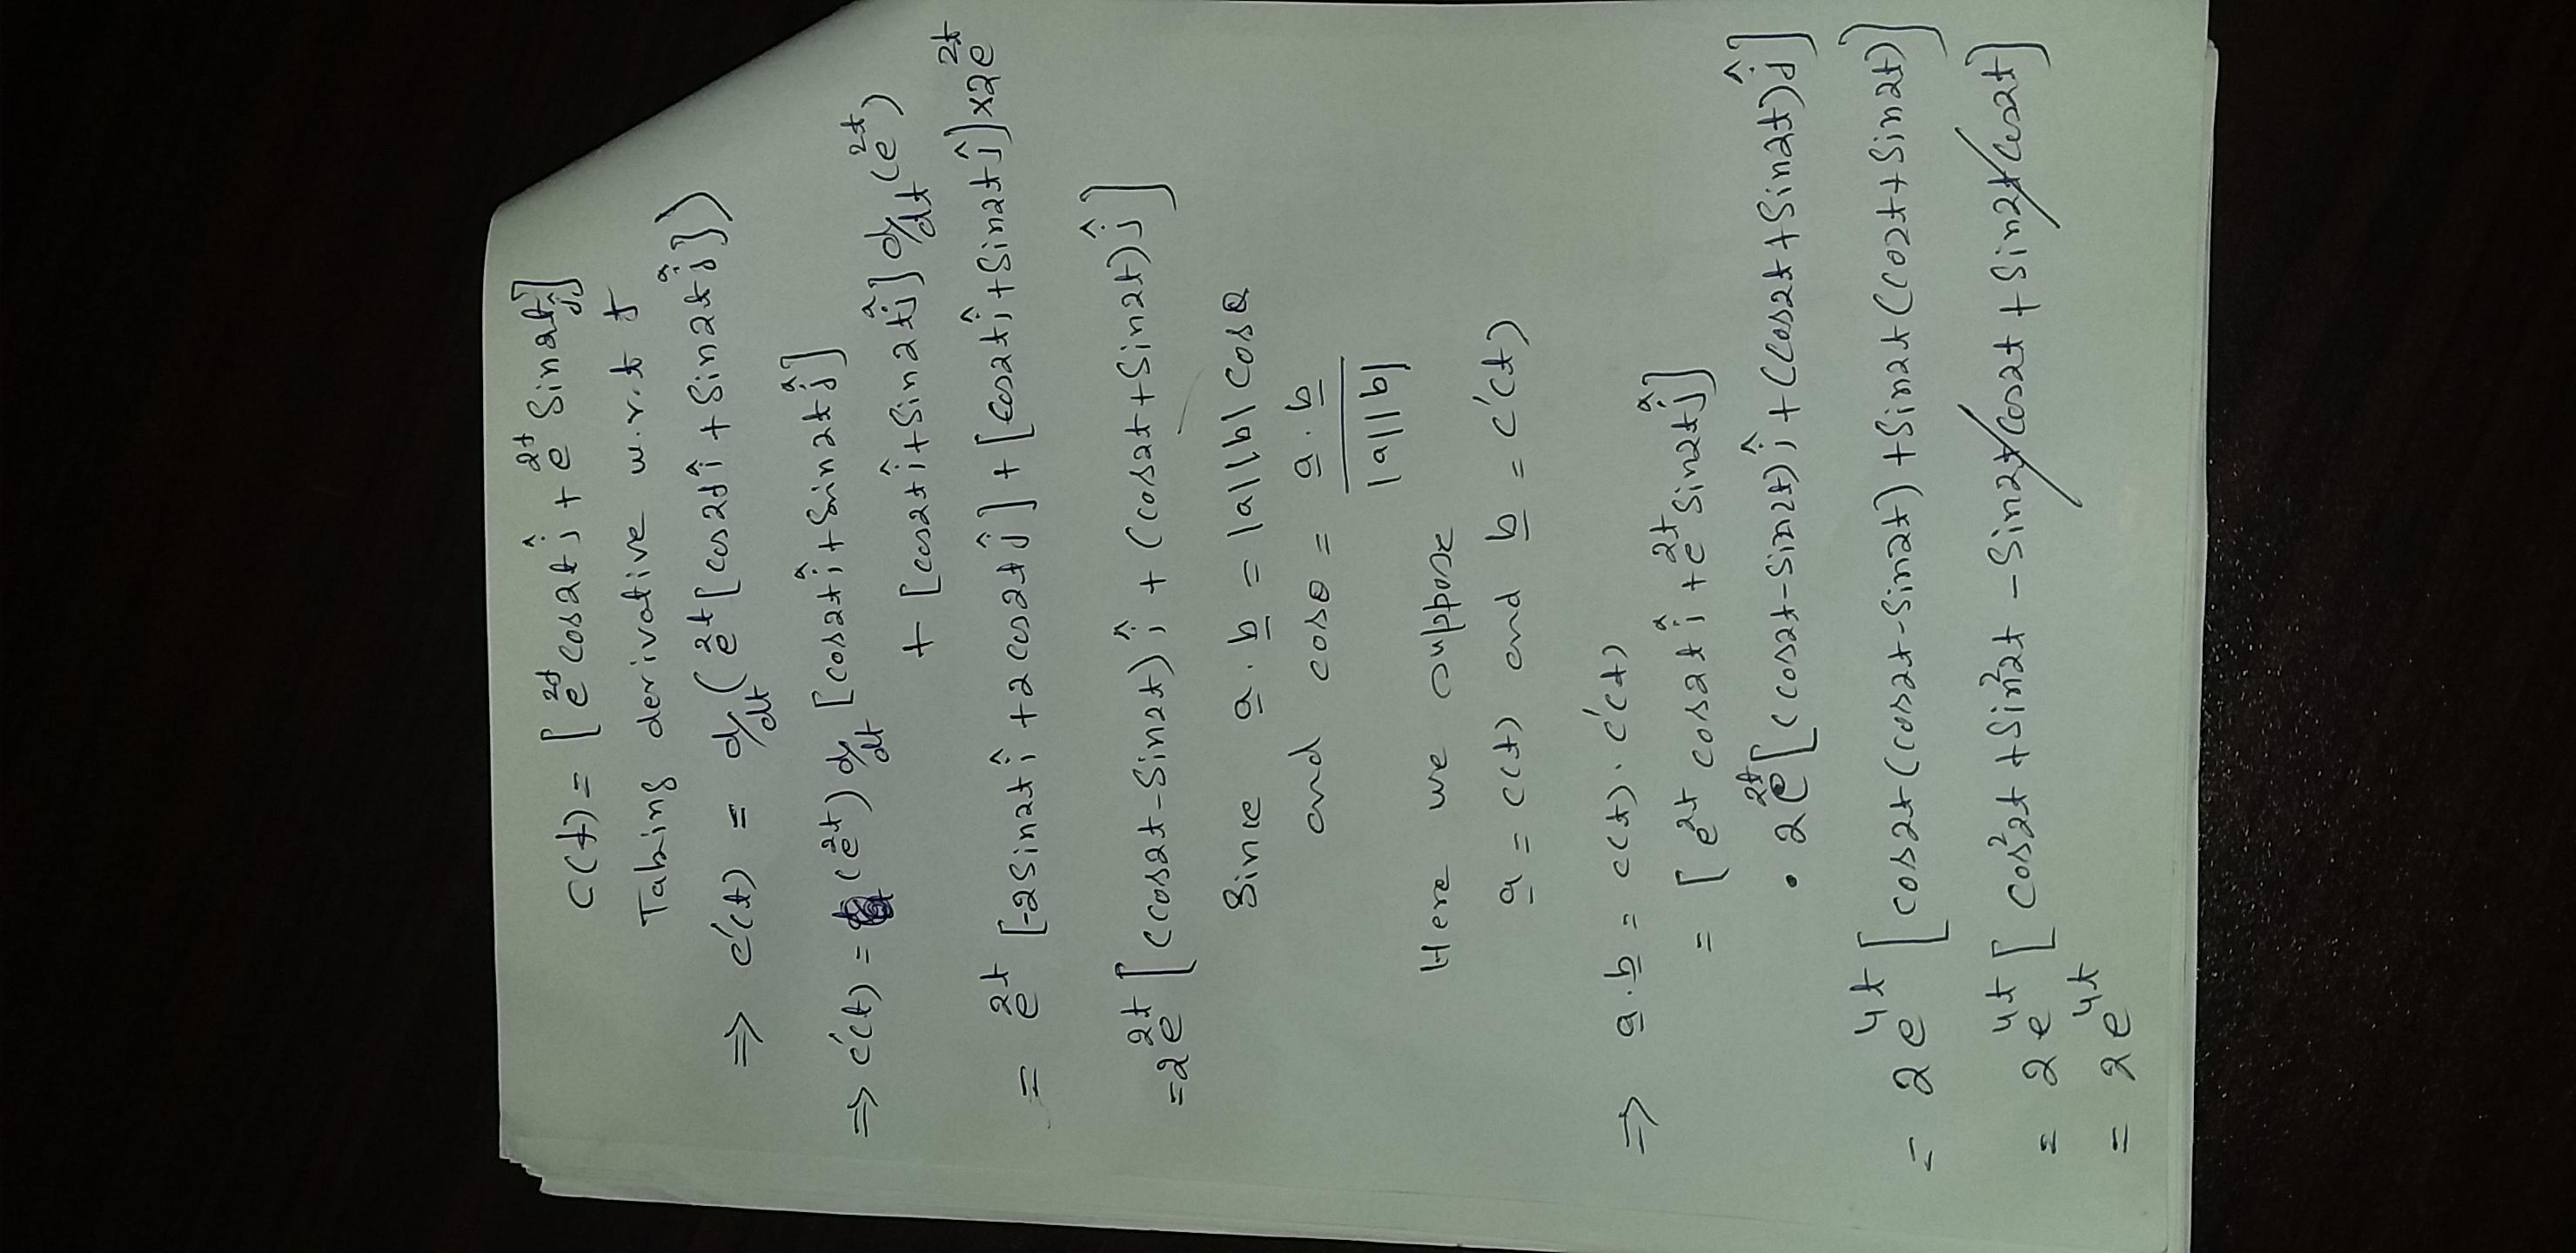 c(t) = [e^2t cos2t î + e^2t Sin2t ĵ]
Taking derivative w.r.t t
⇒ c'(t) = d/dt (e^2t [cos2t î + Sin2t ĵ])
⇒ c'(t) = (e^2t) d/dt [cos2t î + Sin2t ĵ]
+ [cos2t î + Sin2t ĵ] d/dt (e^2t)
= e^2t [-2Sin2t î + 2cos2t ĵ] + [cos2t î + Sin2t ĵ] x 2e^2t
= 2e^2t [(cos2t - Sin2t) î + (cos2t + Sin2t) ĵ]
Since a . b = |a||b| cosθ
and cosθ = a . b / |a||b|
Here we suppose
a = c(t) and b = c'(t)
⇒ a . b = c(t) . c'(t)
= [e^2t cos2t î + e^2t Sin2t ĵ]
• 2e^2t [(cos2t - Sin2t) î + (cos2t + Sin2t) ĵ]
= 2e^4t [cos2t (cos2t - Sin2t) + Sin2t (cos2t + Sin2t)]
= 2e^4t [cos²2t + Sin²2t - Sin2t cos2t + Sin2t cos2t]
= 2e^4t